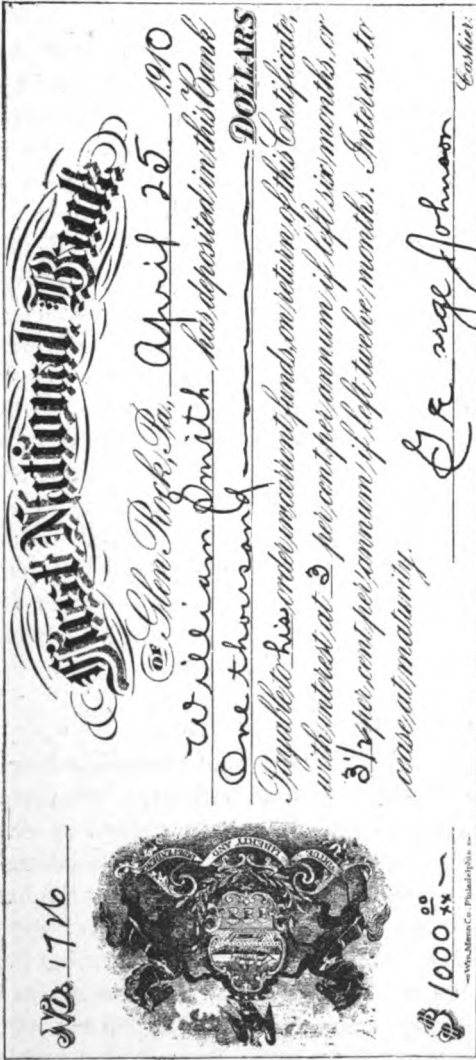 No. 1726
First National Bank
OF Glen Rock, Pa. April 25 1910
William Smith has deposited in this Bank
One thousand DOLLARS
Payable to his order in current funds on return of this Certificate,
with interest at 3 per cent per annum if left six months, or
3 1/2 per cent per annum if left twelve months. Interest to
cease at maturity.
VIRTUE LIBERTY AND INDEPENDENCE
$ 1000 00/xx
George Johnson
Cashier
Wm. Mann Co. Philadelphia